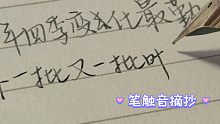 年四季变化最勤
一批又一批叶
笔触音摘抄